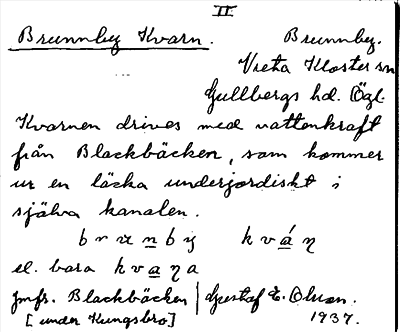 II
Brunnby Kvarn. Brunnby.
Vreta Kloster sn
Gullbergs hd. Ögl.
Kvarnen drives med vattenkraft
från Blackbäcken, som kommer
ur en läcka underjordiskt i
själva kanalen.
brunby kván
el. bara kvana
Jmfr. Blackbäcken | Gustaf E. Olson.
[under Kungsbro] 1937.